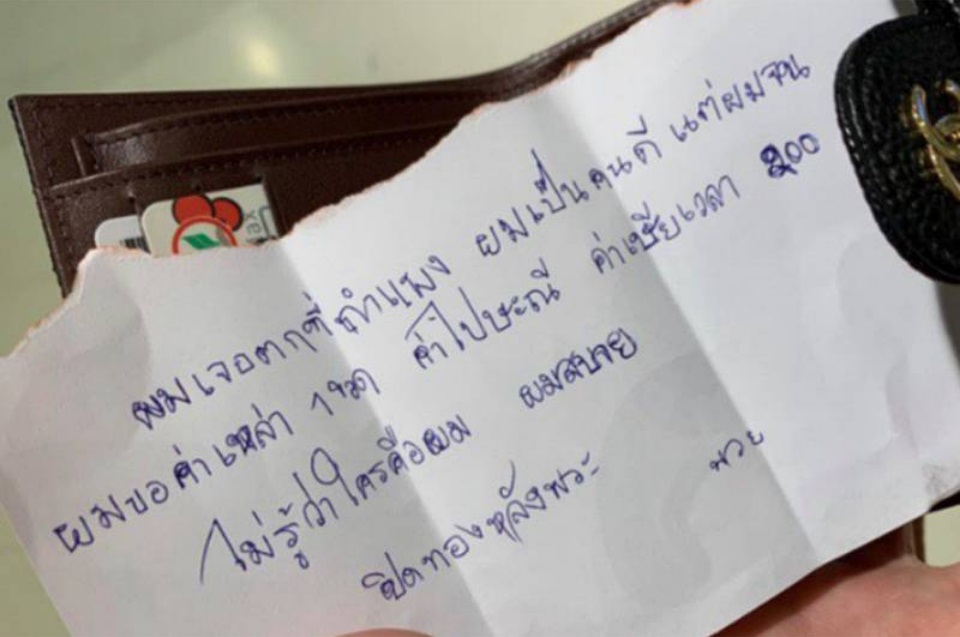 ผมเจอตกที่กำแพง ผมเป็นคนดี แต่ผมจน
ผมขอค่าเหล้า 1 ขวด ค่าไปษะณี ค่าเชียเวลา 200
ไม่รู้ว่าใครคือผม ผมสบาย
ปิดทองหลังพระ